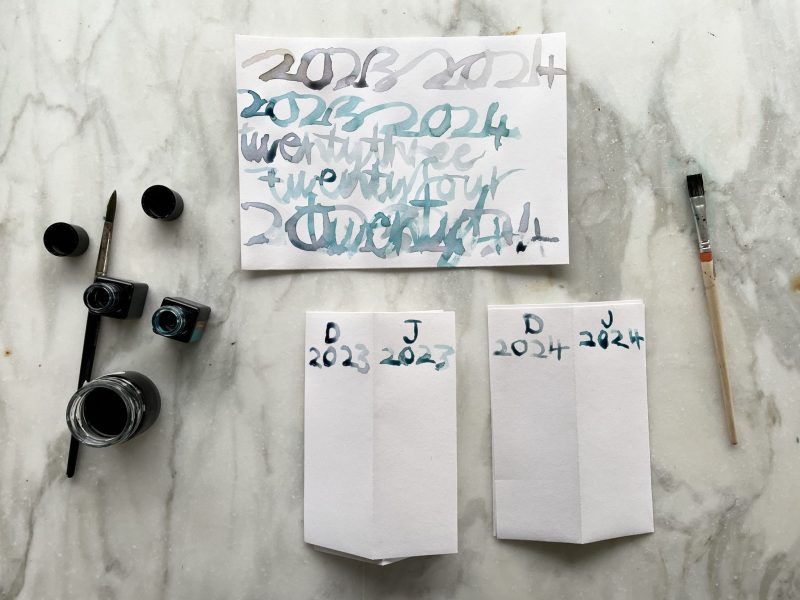 2023 2024
2023 2024
twentythree
twentyfour
D J
2023 2023
D J
2024 2024